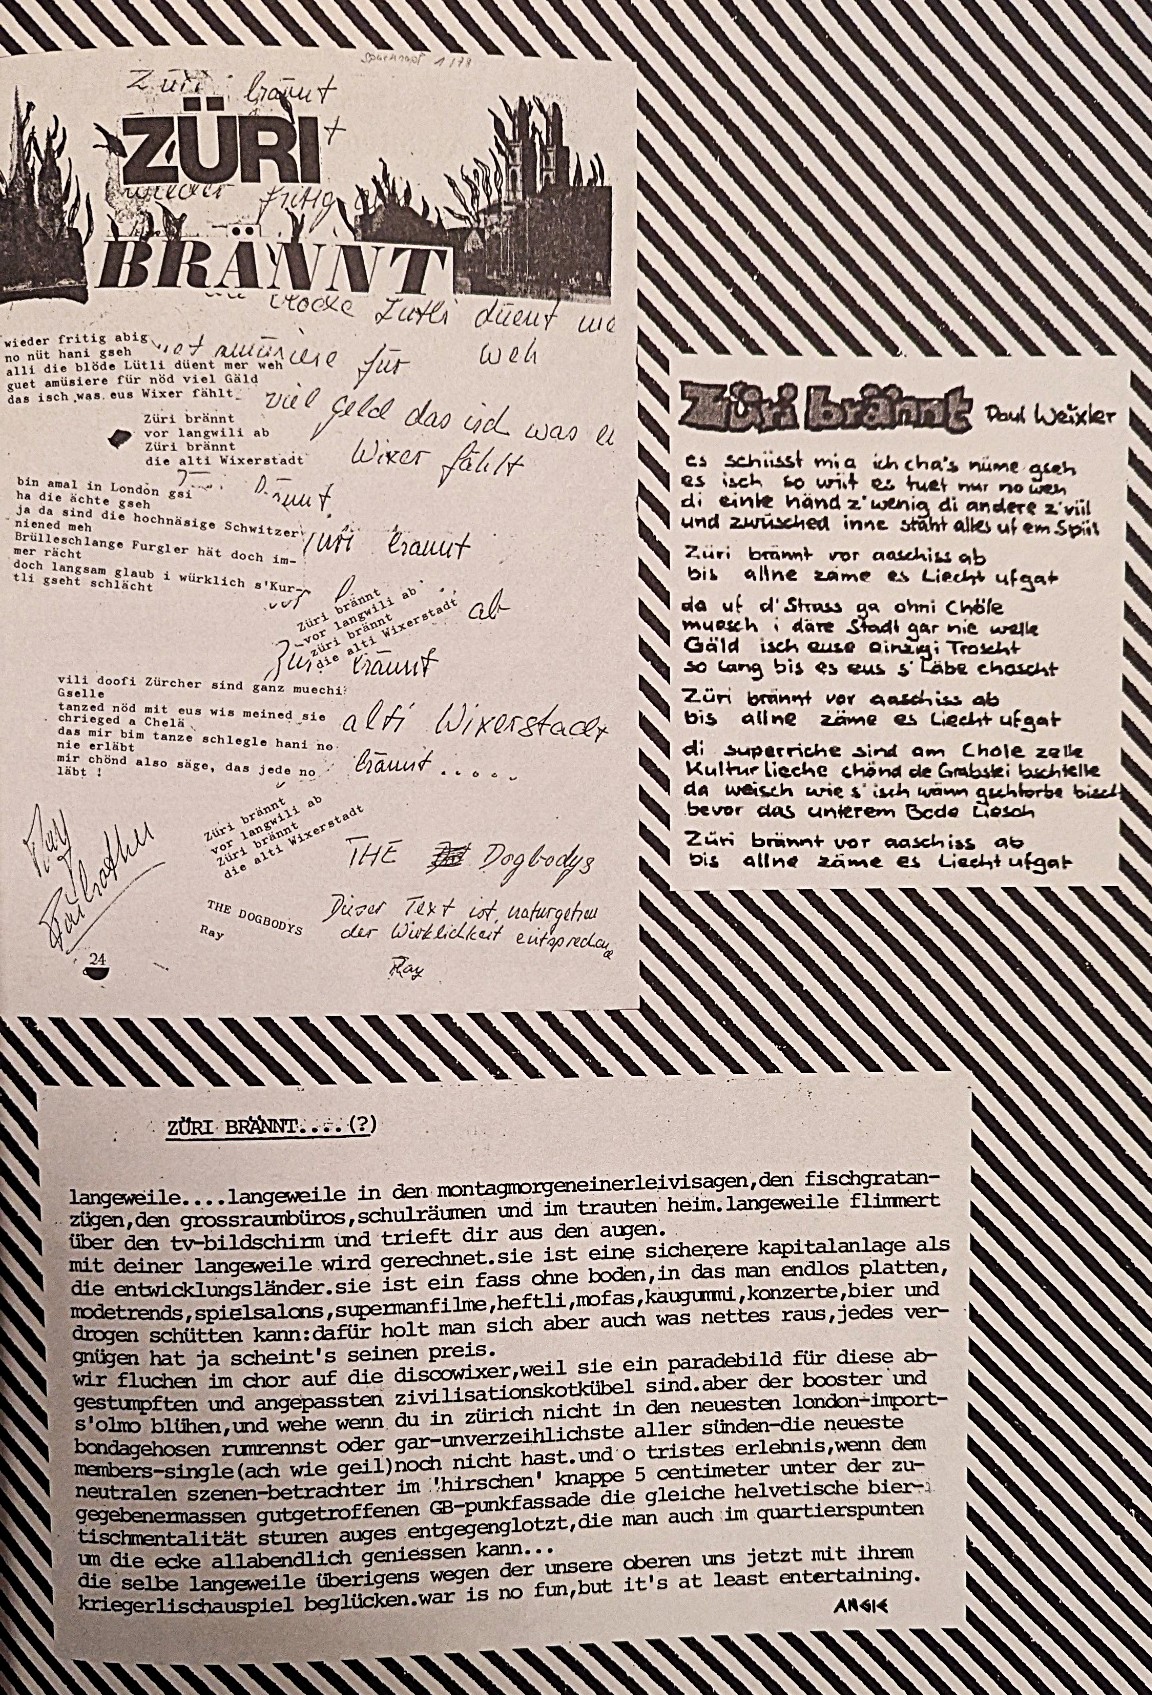 Züri brännt
ZÜRI
wieder fritig
BRÄNNT
Lütli düent
amüsiere für weh
viel Geld das isch was
Wixer fählt
Züri brännt
ab
Züri brännt
alti Wixerstadt
brännt . . . . .
wieder fritig abig
no nüt hani gseh
alli die blöde Lütli düent mer weh
guet amüsiere für nöd viel Gäld
das isch was eus Wixer fählt
Züri brännt
vor langwili ab
Züri brännt
die alti Wixerstadt
bin amal in London gsi
ha die ächte gseh
ja da sind die hochnäsige Schwitzer
niened meh
Brülleschlange Furgler hät doch im-
mer rächt
doch langsam glaub i würklich s'Kur-
tli gseht schlächt
Züri brännt
vor langwili ab
züri brännt
die alti Wixerstadt
vili doofi Zürcher sind ganz muechi
Gselle
tanzed nöd mit eus wis meined sie
chrieged a Chelä
das mir bim tanze schlegle hani no
nie erläbt
mir chönd also säge, das jede no
läbt !
Züri brännt
vor langwili ab
Züri brännt
die alti Wixerstadt
THE DOGBODYS
Ray
THE Dogbodys
Dieser Text ist naturgetreu
der Wirklichkeit entsprechend
Ray
Ray
24
Züri brännt Paul Weixler
es schüsst mi a ich cha's nüme gseh
es isch so wiit es tuet nur no weh
di einte händ z'wenig di andere z'viil
und zwüsched inne staht alles uf em Spiil
Züri brännt vor aaschiss ab
bis allne zäme es Liecht ufgat
da uf d'Strass ga ohni Chöle
muesch i däre Stadt gar nie welle
Gäld isch euse einzigi Troscht
so lang bis es eus s'Läbe choscht
Züri brännt vor aaschiss ab
bis allne zäme es Liecht ufgat
di superriche sind am Chole zelle
Kulturlieche chönd de Grabstei bschtelle
da weisch wie s'isch wänn gschtorbe bisch
bevor das unterem Bode liesch
Züri brännt vor aaschiss ab
bis allne zäme es Liecht ufgat
ZÜRI BRÄNNT....(?)
langeweile....langeweile in den montagmorgeneinerleivisagen,den fischgratan-
zügen,den grossraumbüros,schulräumen und im trauten heim.langeweile flimmert
über den tv-bildschirm und trieft dir aus den augen.
mit deiner langeweile wird gerechnet.sie ist eine sicherere kapitalanlage als
die entwicklungsländer.sie ist ein fass ohne boden,in das man endlos platten,
modetrends,spielsalons,supermanfilme,heftli,mofas,kaugummi,konzerte,bier und
drogen schütten kann:dafür holt man sich aber auch was nettes raus,jedes ver-
gnügen hat ja scheint's seinen preis.
wir fluchen im chor auf die discowixer,weil sie ein paradebild für diese ab-
gestumpften und angepassten zivilisationskotkübel sind.aber der booster und
s'olmo blühen,und wehe wenn du in zürich nicht in den neuesten london-import-
bondagehosen rumrennst oder gar-unverzeihlichste aller sünden-die neueste
members-single(ach wie geil)noch nicht hast.und o tristes erlebnis,wenn dem
neutralen szenen-betrachter im 'hirschen' knappe 5 centimeter unter der zu-
gegebenermassen gutgetroffenen GB-punkfassade die gleiche helvetische bier-
tischmentalität sturen auges entgegenglotzt,die man auch im quartierspunten
um die ecke allabendlich geniessen kann...
die selbe langeweile überigens wegen der unsere oberen uns jetzt mit ihrem
kriegerlischauspiel beglücken.war is no fun,but it's at least entertaining.
ANGIE